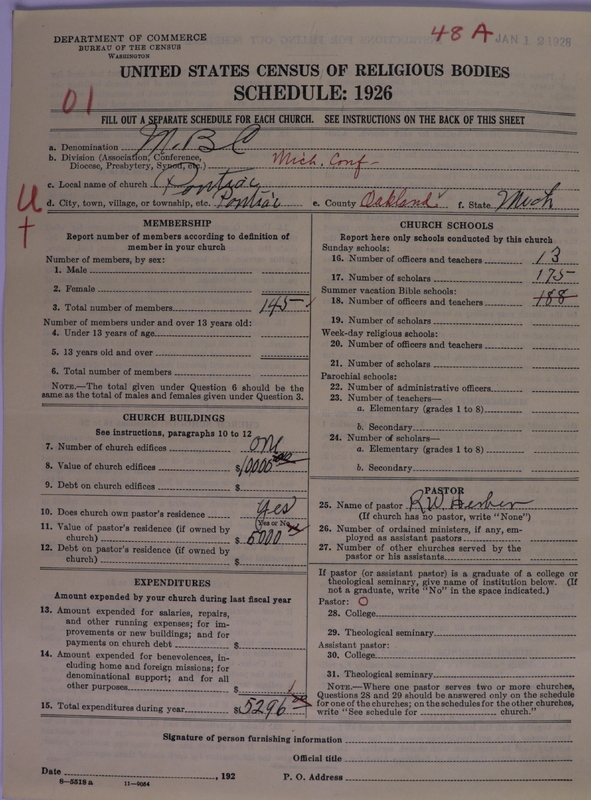 48A JAN 12 1928
DEPARTMENT OF COMMERCE
BUREAU OF THE CENSUS
WASHINGTON
UNITED STATES CENSUS OF RELIGIOUS BODIES
SCHEDULE: 1926
01
FILL OUT A SEPARATE SCHEDULE FOR EACH CHURCH. SEE INSTRUCTIONS ON THE BACK OF THIS SHEET
a. Denomination M.B.C
b. Division (Association, Conference, Diocese, Presbytery, Synod, etc.) Mich. Conf-
c. Local name of church Pontiac
d. City, town, village, or township, etc. Pontiac e. County Oakland f. State Mich
U
MEMBERSHIP
Report number of members according to definition of
member in your church
Number of members, by sex:
1. Male
2. Female
3. Total number of members 145
Number of members under and over 13 years old:
4. Under 13 years of age
5. 13 years old and over
6. Total number of members
NOTE.—The total given under Question 6 should be
same as the total of males and females given under Question 3.
CHURCH BUILDINGS
See instructions, paragraphs 10 to 12
7. Number of church edifices one
8. Value of church edifices $10000
9. Debt on church edifices $
10. Does church own pastor's residence Yes
(Yes or No)
11. Value of pastor's residence (if owned by
church) $5000
12. Debt on pastor's residence (if owned by
church) $
EXPENDITURES
Amount expended by your church during last fiscal year
13. Amount expended for salaries, repairs,
and other running expenses; for im-
provements or new buildings; and for
payments on church debt $
14. Amount expended for benevolences, in-
cluding home and foreign missions; for
denominational support; and for all
other purposes $
15. Total expenditures during year $5296
CHURCH SCHOOLS
Report here only schools conducted by this church
Sunday schools:
16. Number of officers and teachers 13
17. Number of scholars 175
Summer vacation Bible schools:
18. Number of officers and teachers 188
19. Number of scholars
Week-day religious schools:
20. Number of officers and teachers
21. Number of scholars
Parochial schools:
22. Number of administrative officers
23. Number of teachers—
a. Elementary (grades 1 to 8)
b. Secondary
24. Number of scholars—
a. Elementary (grades 1 to 8)
b. Secondary
PASTOR
25. Name of pastor R.W. Herber
(If church has no pastor, write "None")
26. Number of ordained ministers, if any, em-
ployed as assistant pastors
27. Number of other churches served by the
pastor or his assistants
If pastor (or assistant pastor) is a graduate of a college or
theological seminary, give name of institution below. (If
not a graduate, write "No" in the space indicated.)
Pastor: O
28. College
29. Theological seminary
Assistant pastor:
30. College
31. Theological seminary
NOTE.—Where one pastor serves two or more churches,
Questions 28 and 29 should be answered only on the schedule
for one of the churches; on the schedules for the other churches,
write "See schedule for church."
Signature of person furnishing information
Official title
Date , 192 P. O. Address
8—5518 a 11—9064